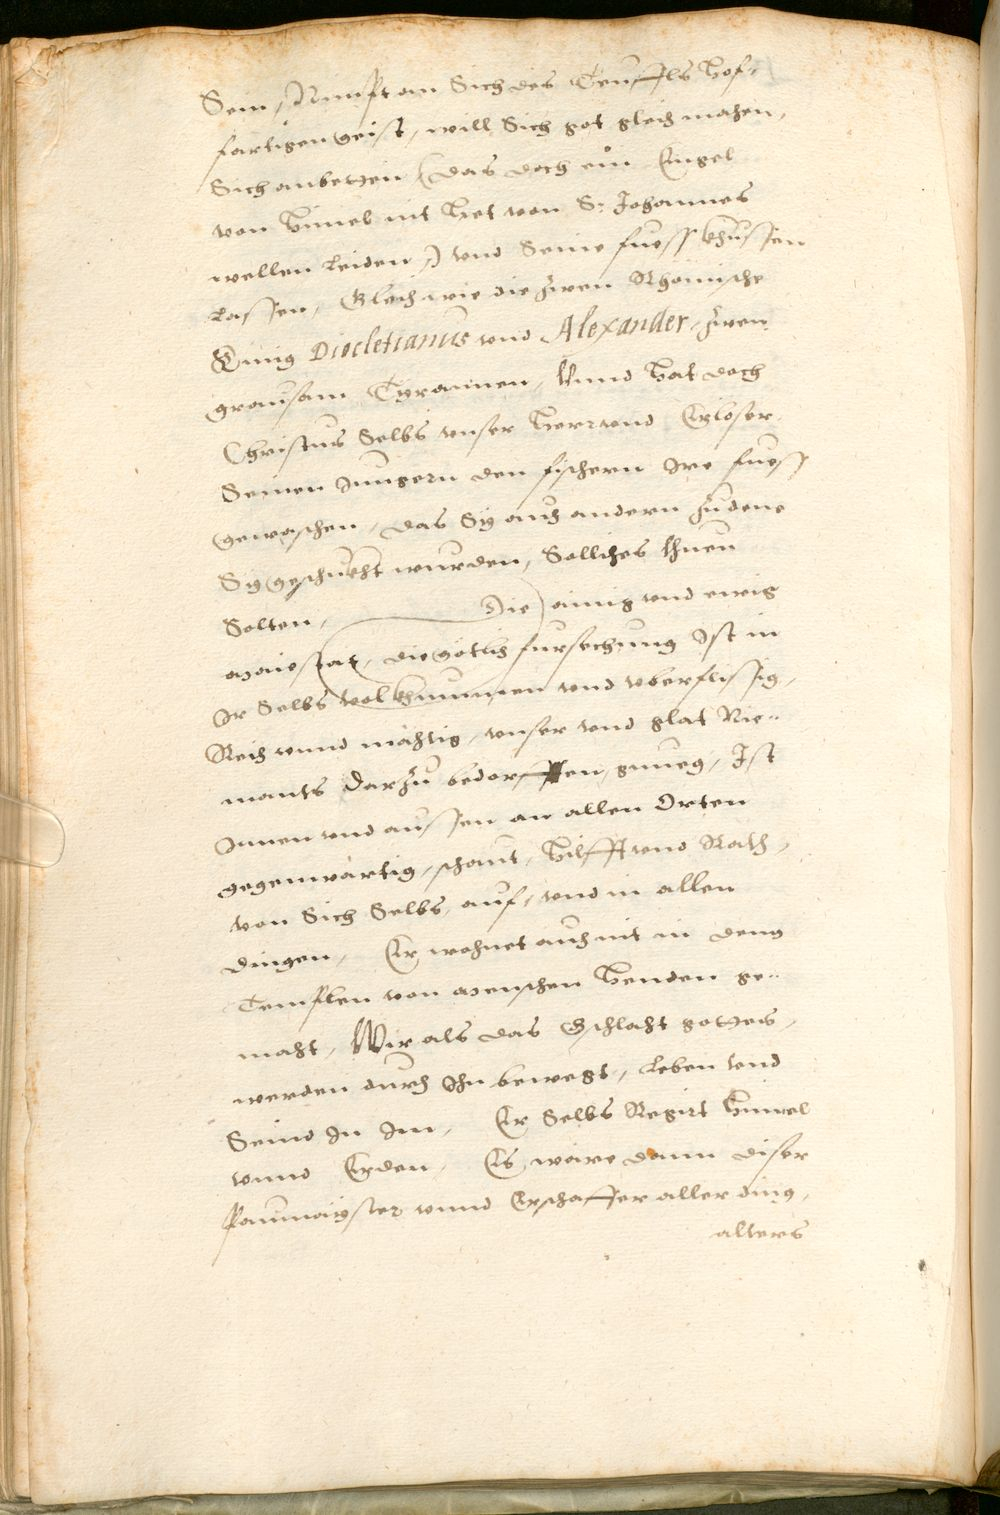 Sein, Nimpt an Sich des Teuffls hof-
fartigen geist, will Sich got gleich machen,
Sich anbetten (das doch ein Engel
von himel nit het von S: Johannes
wellen leiden,) vnd Seine fuess khussen
lassen, Gleich wie die zwen Rhömische
Künig Diocletianus vnd Alexander, zwen
grausam Tyrannen, Vnnd hat doch
Christus Selbs vnser herr vnd Erlöser
Seinen Jungern den fischern Ire fuess
gewaschen, das Sy auch andern zu dene
Sy geschickht wurden, Solliches thuen
Solten, Die ainig vnd ewig
maiestat, die götlich fursechung Ist in
Ir Selbs volkhummen vnd vberflissig,
Reich vnnd mächtig, vnser vnd glat Nie-
mants darzu bedorffen, gnueg, Ist
Innen vnd aussen an allen Orten
gegenwärtig, schaut, hilfft vnd Rath,
von Sich Selbs, auf, vnd in allen
dingen, Er wohnet auch nit in deng
Templen von menschen henden ge-
macht, Wir als das Gschlacht gottes,
werden durch Ihn bewegt, Leben vnd
Seind In Im, Er Selbs Regirt himel
vnnd Erden, Es wäre dann diser
Paumäyster vnnd Erschaffer aller ding,
alters